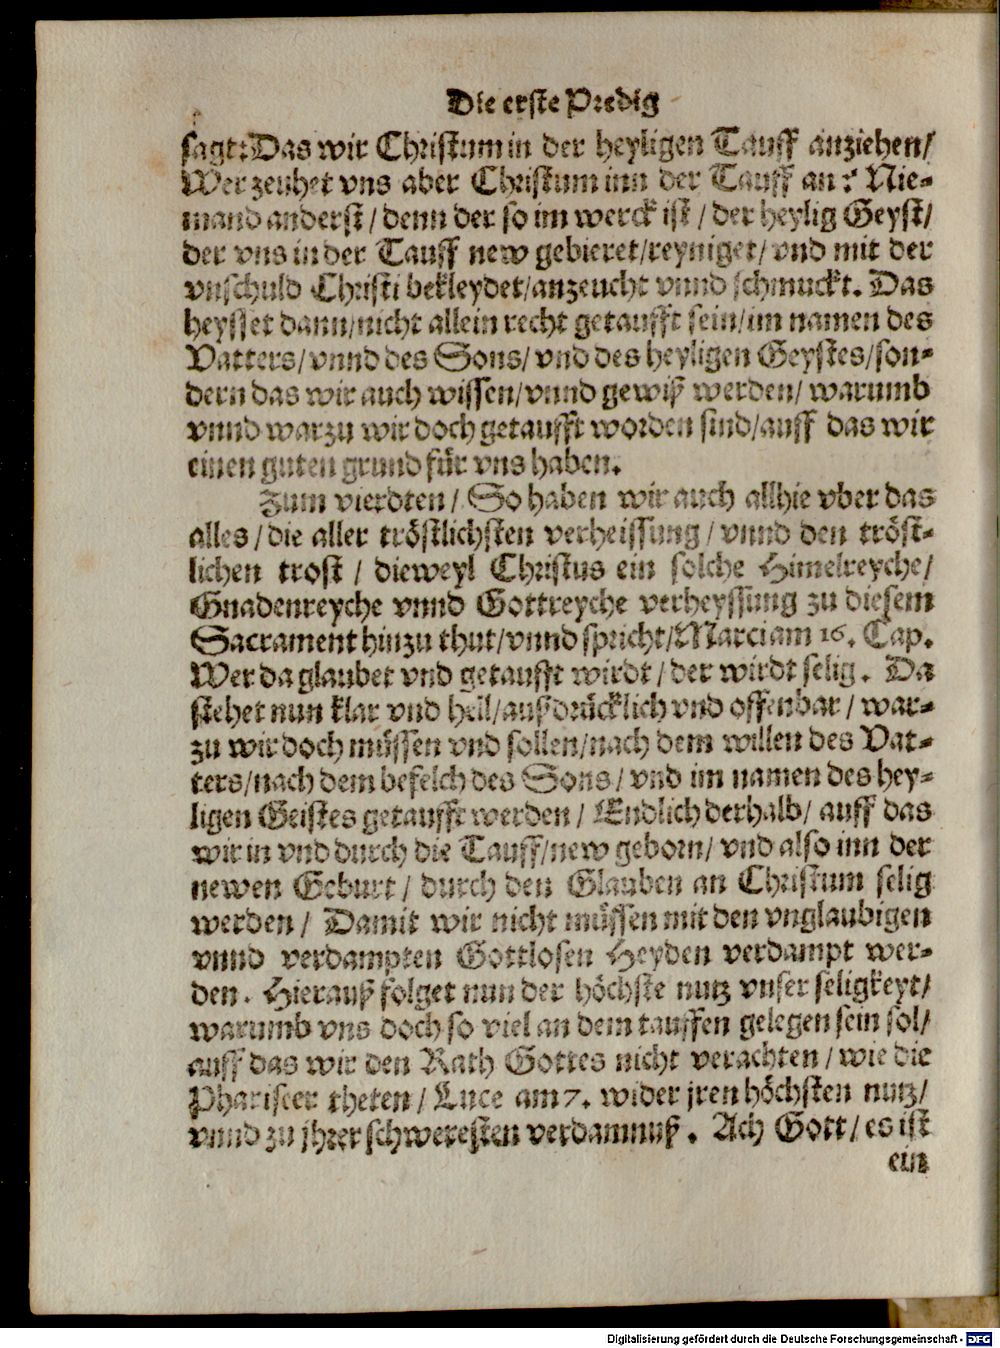 Die erste Predig
sagt: Das wir Christum in der heyligen Tauff anziehen/
Wer zeuhet vns aber Christum inn der Tauff an? Nie-
mand anderst / denn der so im werck ist / der heylig Geyst/
der vns in der Tauff new gebieret/reyniget/ vnd mit der
vnschuld Christi bekleydet/anzeucht vnnd schmuckt. Das
heysset dann/nicht allein recht getaufft sein/im namen des
Vatters/vnnd des Sons/ vnd des heyligen Geystes/son-
dern das wir auch wissen/vnnd gewiß werden/ warumb
vnnd warzu wir doch getaufft worden sind/auff das wir
einen guten grund für vns haben.
Zum vierdten / So haben wir auch allhie vber das
alles / die aller tröstlichsten verheissung / vnnd den tröst-
lichen trost / dieweyl Christus ein solche Himelreyche/
Gnadenreyche vnnd Gottreyche verheyssung zu diesem
Sacrament hinzu thut/vnnd spricht/Marci am 16. Cap.
Wer da glaubet vnd getaufft wirdt / der wirdt selig. Da
stehet nun klar vnd hell/außdrücklich vnd offenbar / war-
zu wir doch müssen vnd sollen/nach dem willen des Vat-
ters/nach dem befelch des Sons / vnd im namen des hey-
ligen Geistes getaufft werden / Endlich derhalb/ auff das
wir in vnd durch die Tauff/new geborn/ vnd also inn der
newen Geburt / durch den Glauben an Christum selig
werden / Damit wir nicht müssen mit den vnglaubigen
vnnd verdampten Gottlosen Heyden verdampt wer-
den. Hierauß folget nun der höchste nutz vnser seligkeyt/
warumb vns doch so viel an dem tauffen gelegen sein sol/
auff das wir den Rath Gottes nicht verachten / wie die
Phariseer theten / Luce am 7. wider jren höchsten nutz/
vnnd zu jhrer schweresten verdamnuß. Ach Gott / es ist
ein
Digitalisierung gefördert durch die Deutsche Forschungsgemeinschaft - DFG